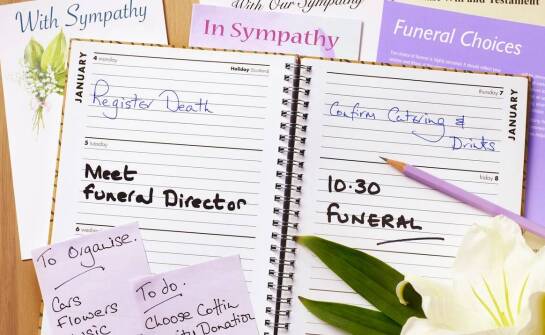 With Sympathy
With Our Sympathy
In Sympathy
Will and Testament
Funeral Choices
JANUARY
4 monday
Holiday (Scotland)
Register Death
5 tuesday
Meet
funeral Director
6 wednesday
thursday 7
JANUARY
Confirm Catering &
Drinks
friday 8
10.30
FUNERAL
To Organise.
Cars
Flowers
Music
To do.
Choose Coffin
Donation